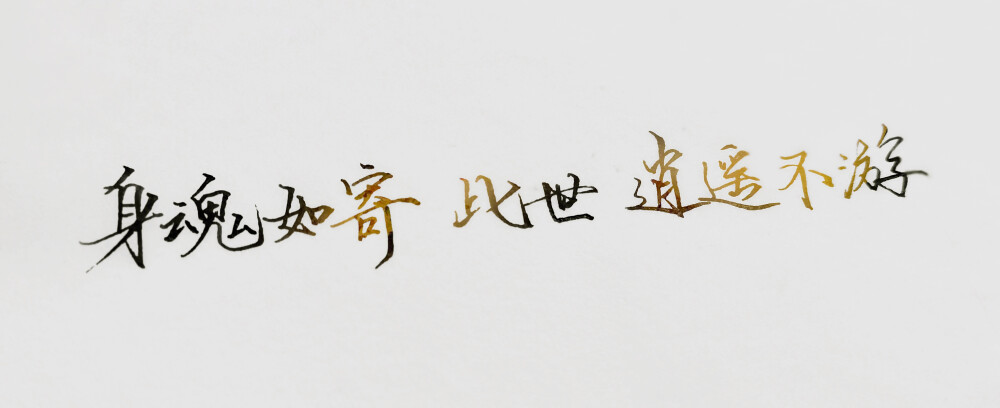 身魂如寄 此世逍遥不游